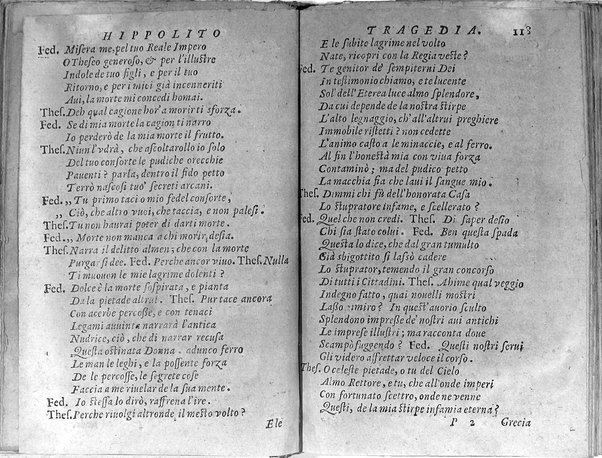 HIPPOLITO
Fed. Misera me, pel tuo Reale Impero
O Theseo generoso, & per l'illustre
Indole de tuo figli, e per il tuo
Ritorno, e per i miei già incenneriti
Aui, la morte mi concedi homai.
Thes. Deh qual cagione hor' a morirti sforza.
Fed. Se di mia morte la cagion ti narro
Io perderò de la mia morte il frutto.
Thes. Niun l'vdrà, che ascoltarollo io solo
Del tuo consorte le pudiche orecchie
Pauenti? parla, dentro il fido petto
Terrò nascosi tuo' secreti arcani.
Fed. „ Tu primo taci o mio fedel consorte,
„ Ciò, che altro vuoi, che taccia, e non palesi.
Thes. Tu non haurai poter di darti morte.
Fed. „ Morte non manca a chi morir, desia.
Thes. Narra il delitto almen; che con la morte
Purgar si dee. Fed. Perche ancor viuo. Thes. Nulla
Ti muouon le mie lagrime dolenti?
Fed. Dolce è la morte sospirata, e pianta
Da la pietade altrui. Thes. Pur tace ancora
Con acerbe percosse, e con tenaci
Legami auuinta narrarà l'antica
Nudrice, ciò, che di narrar recusa
Questa ostinata Donna. adunco ferro
Le man le leghi, e la possente forza
De le percosse, le segrete cose
Faccia a me riuelar de la sua mente.
Fed. Io stessa lo dirò, raffrena l'ire.
Thes. Perche riuolgi altronde il mesto volto?
Ele
TRAGEDIA. 118
E le subite lagrime nel volto
Nate, ricopri con la Regia veste?
Fed. Te genitor de' sempiterni Dei
In testimonio chiamo, e te lucente
Sol' dell'Eterea luce almo splendore,
Da cui depende de la nostra stirpe
L'alto legnaggio, ch'all'altrui preghiere
Immobile ristetti? non cedette
L'animo casto a le minaccie, e al ferro.
Al fin l'honestà mia con viua forza
Contaminò; ma del pudico petto
La macchia fia che laui il sangue mio.
Thes. Dimmi chi fù dell'honorata Casa
Lo stupratore infame, e scellerato?
Fed. Quel che non credi. Thes. Di saper desio
Chi sia stato colui. Fed. Ben questa spada
Questa lo dice, che dal gran tumulto
Già sbigottito si lasciò cadere
Lo stuprator, temendo il gran concorso
Di tutti i Cittadini. Thes. Ahime qual veggio
Indegno fatto, quai nouelli mostri
Lasso rimiro? In quest'auorio sculto
Splendono impresse de' nostri aui antichi
Le imprese illustri; ma racconta doue
Scampò fuggendo? Fed. Questi nostri serui
Gli videro affrettar veloce il corso.
Thes. O celeste pietade, o tu del Cielo
Almo Rettore, e tu, che all'onde imperi
Con fortunato scettro, onde ne venne
Questi, de la mia stirpe infamia eterna?
P 2 Grecia